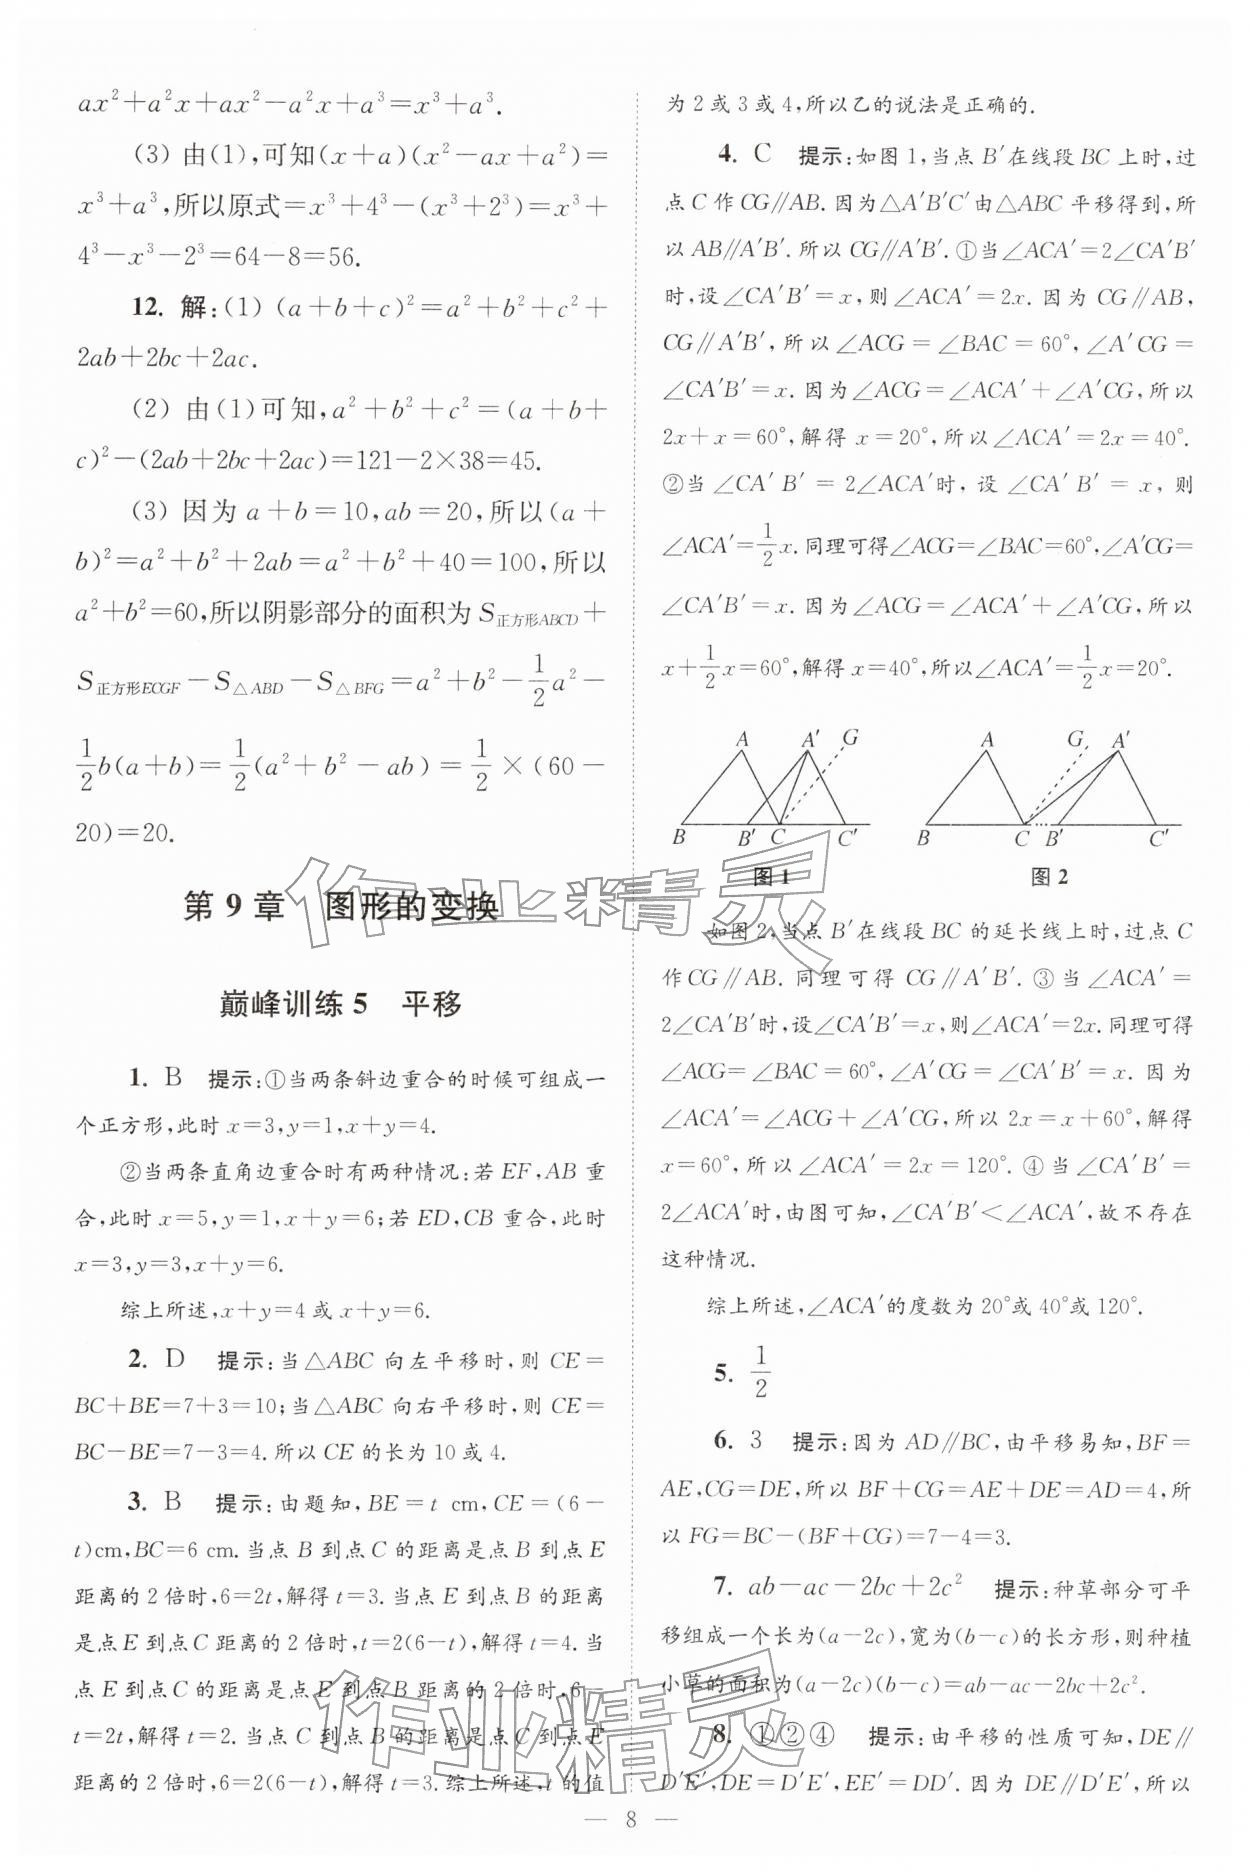 ax²+a²x+ax²-a²x+a³=x³+a³.
(3) 由(1),可知(x+a)(x²-ax+a²)=
x³+a³,所以原式=x³+4³-(x³+2³)=x³+
4³-x³-2³=64-8=56.
12. 解:(1) (a+b+c)²=a²+b²+c²+
2ab+2bc+2ac.
(2) 由(1)可知,a²+b²+c²=(a+b+
c)²-(2ab+2bc+2ac)=121-2×38=45.
(3) 因为 a+b=10,ab=20,所以(a+
b)²=a²+b²+2ab=a²+b²+40=100,所以
a²+b²=60,所以阴影部分的面积为 S正方形ABCD+
S正方形ECGF-S△ABD-S△BFG=a²+b²-1/2a²-
1/2b(a+b)=1/2(a²+b²-ab)=1/2×(60-
20)=20.
第9章 图形的变换
巅峰训练5 平移
1. B 提示:①当两条斜边重合的时候可组成一
个正方形,此时 x=3,y=1,x+y=4.
②当两条直角边重合时有两种情况:若 EF,AB 重
合,此时 x=5,y=1,x+y=6;若 ED,CB 重合,此时
x=3,y=3,x+y=6.
综上所述,x+y=4 或 x+y=6.
2. D 提示:当△ABC 向左平移时,则 CE=
BC+BE=7+3=10;当△ABC 向右平移时,则 CE=
BC-BE=7-3=4.所以 CE 的长为 10 或 4.
3. B 提示:由题知,BE=t cm,CE=(6-
t)cm,BC=6 cm.当点 B 到点 C 的距离是点 B 到点 E
距离的 2 倍时,6=2t,解得 t=3.当点 E 到点 B 的距离
是点 E 到点 C 距离的 2 倍时,t=2(6-t),解得 t=4.当
点 E 到点 C 的距离是点 E 到点 B 距离的 2 倍时,6-
t=2t,解得 t=2.当点 C 到点 B 的距离是点 C 到点 E
距离的 2 倍时,6=2(6-t),解得 t=3.综上所述,t 的值
为 2 或 3 或 4,所以乙的说法是正确的.
4. C 提示:如图 1,当点 B′在线段 BC 上时,过
点 C 作 CG∥AB.因为△A′B′C′由△ABC 平移得到,所
以 AB∥A′B′.所以 CG∥A′B′.①当∠ACA′=2∠CA′B′
时,设∠CA′B′=x,则∠ACA′=2x.因为 CG∥AB,
CG∥A′B′,所以∠ACG=∠BAC=60°,∠A′CG=
∠CA′B′=x.因为∠ACG=∠ACA′+∠A′CG,所以
2x+x=60°,解得 x=20°,所以∠ACA′=2x=40°.
②当∠CA′B′=2∠ACA′时,设∠CA′B′=x,则
∠ACA′=1/2x.同理可得∠ACG=∠BAC=60°,∠A′CG=
∠CA′B′=x.因为∠ACG=∠ACA′+∠A′CG,所以
x+1/2x=60°,解得 x=40°,所以∠ACA′=1/2x=20°.
A A′ G A G A′
B B′ C C′ B C B′ C′
图1 图2
如图 2,当点 B′在线段 BC 的延长线上时,过点 C
作 CG∥AB.同理可得 CG∥A′B′.③当∠ACA′=
2∠CA′B′时,设∠CA′B′=x,则∠ACA′=2x.同理可得
∠ACG=∠BAC=60°,∠A′CG=∠CA′B′=x.因为
∠ACA′=∠ACG+∠A′CG,所以 2x=x+60°,解得
x=60°,所以∠ACA′=2x=120°.④当∠CA′B′=
2∠ACA′时,由图可知,∠CA′B′<∠ACA′,故不存在
这种情况.
综上所述,∠ACA′的度数为 20°或 40°或 120°.
5. 1/2
6. 3 提示:因为 AD∥BC,由平移易知,BF=
AE,CG=DE,所以 BF+CG=AE+DE=AD=4,所
以 FG=BC-(BF+CG)=7-4=3.
7. ab-ac-2bc+2c² 提示:种草部分可平
移组成一个长为(a-2c),宽为(b-c)的长方形,则种植
小草的面积为(a-2c)(b-c)=ab-ac-2bc+2c².
8. ①②④ 提示:由平移的性质可知,DE∥
D′E′,DE=D′E′,EE′=DD′.因为 DE∥D′E′,所以
— 8 —
作业精灵
作业精灵